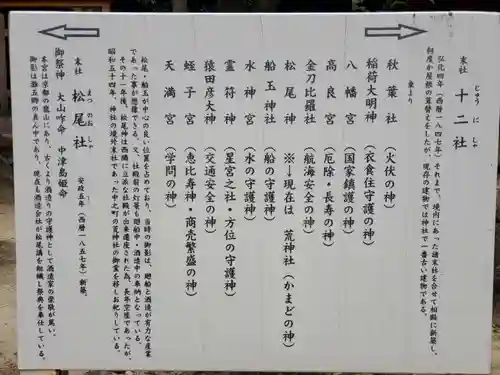 じゅうにしゃ
末社 十二社
弘化四年(西暦一八四七年)それまで、境内にあった諸末社を合せて相殿に新築し、
何度か屋根の葺替えをしたが、現存の建物では神社で一番古い建物である。
東より
秋葉社(火伏の神)
稲荷大明神(衣食住守護の神)
八幡宮(国家鎮護の神)
高良宮(厄除・長寿の神)
金刀比羅社(航海安全の神)
松尾神 ※→現在は 荒神社(かまどの神)
船玉神社(船の守護神)
水神宮(水の守護神)
霊符神(星宮之社・方位の守護神)
猿田彦大神(交通安全の神)
蛭子宮(恵比寿神・商売繁盛の神)
天満宮(学問の神)
松尾・船玉が中心の良い位置を占めており、当時の御影は、廻船と酒造が有力な産業
であった事が想像できる。又、社殿前の灯篭も廻船中・酒造中の奉納となっている。
その十一年後、松尾神は西隣に立派な社殿が出来遷座された為、長年空座であったが、
昭和五十四年、神社の境外末社であった中之町の荒神社の御霊を移しお祀りしている。
まつのおしゃ
末社 松尾社 安政五年(西暦一八五七年)新築。
御祭神 大山咋命 中津島姫命
本宮は京都の嵐山にあり、古くより酒造りの守護神として酒造家の崇敬が篤い。
御影は灘五郷の真ん中であり、現在も酒造会社が松尾講を組織し祭典を奉仕している。